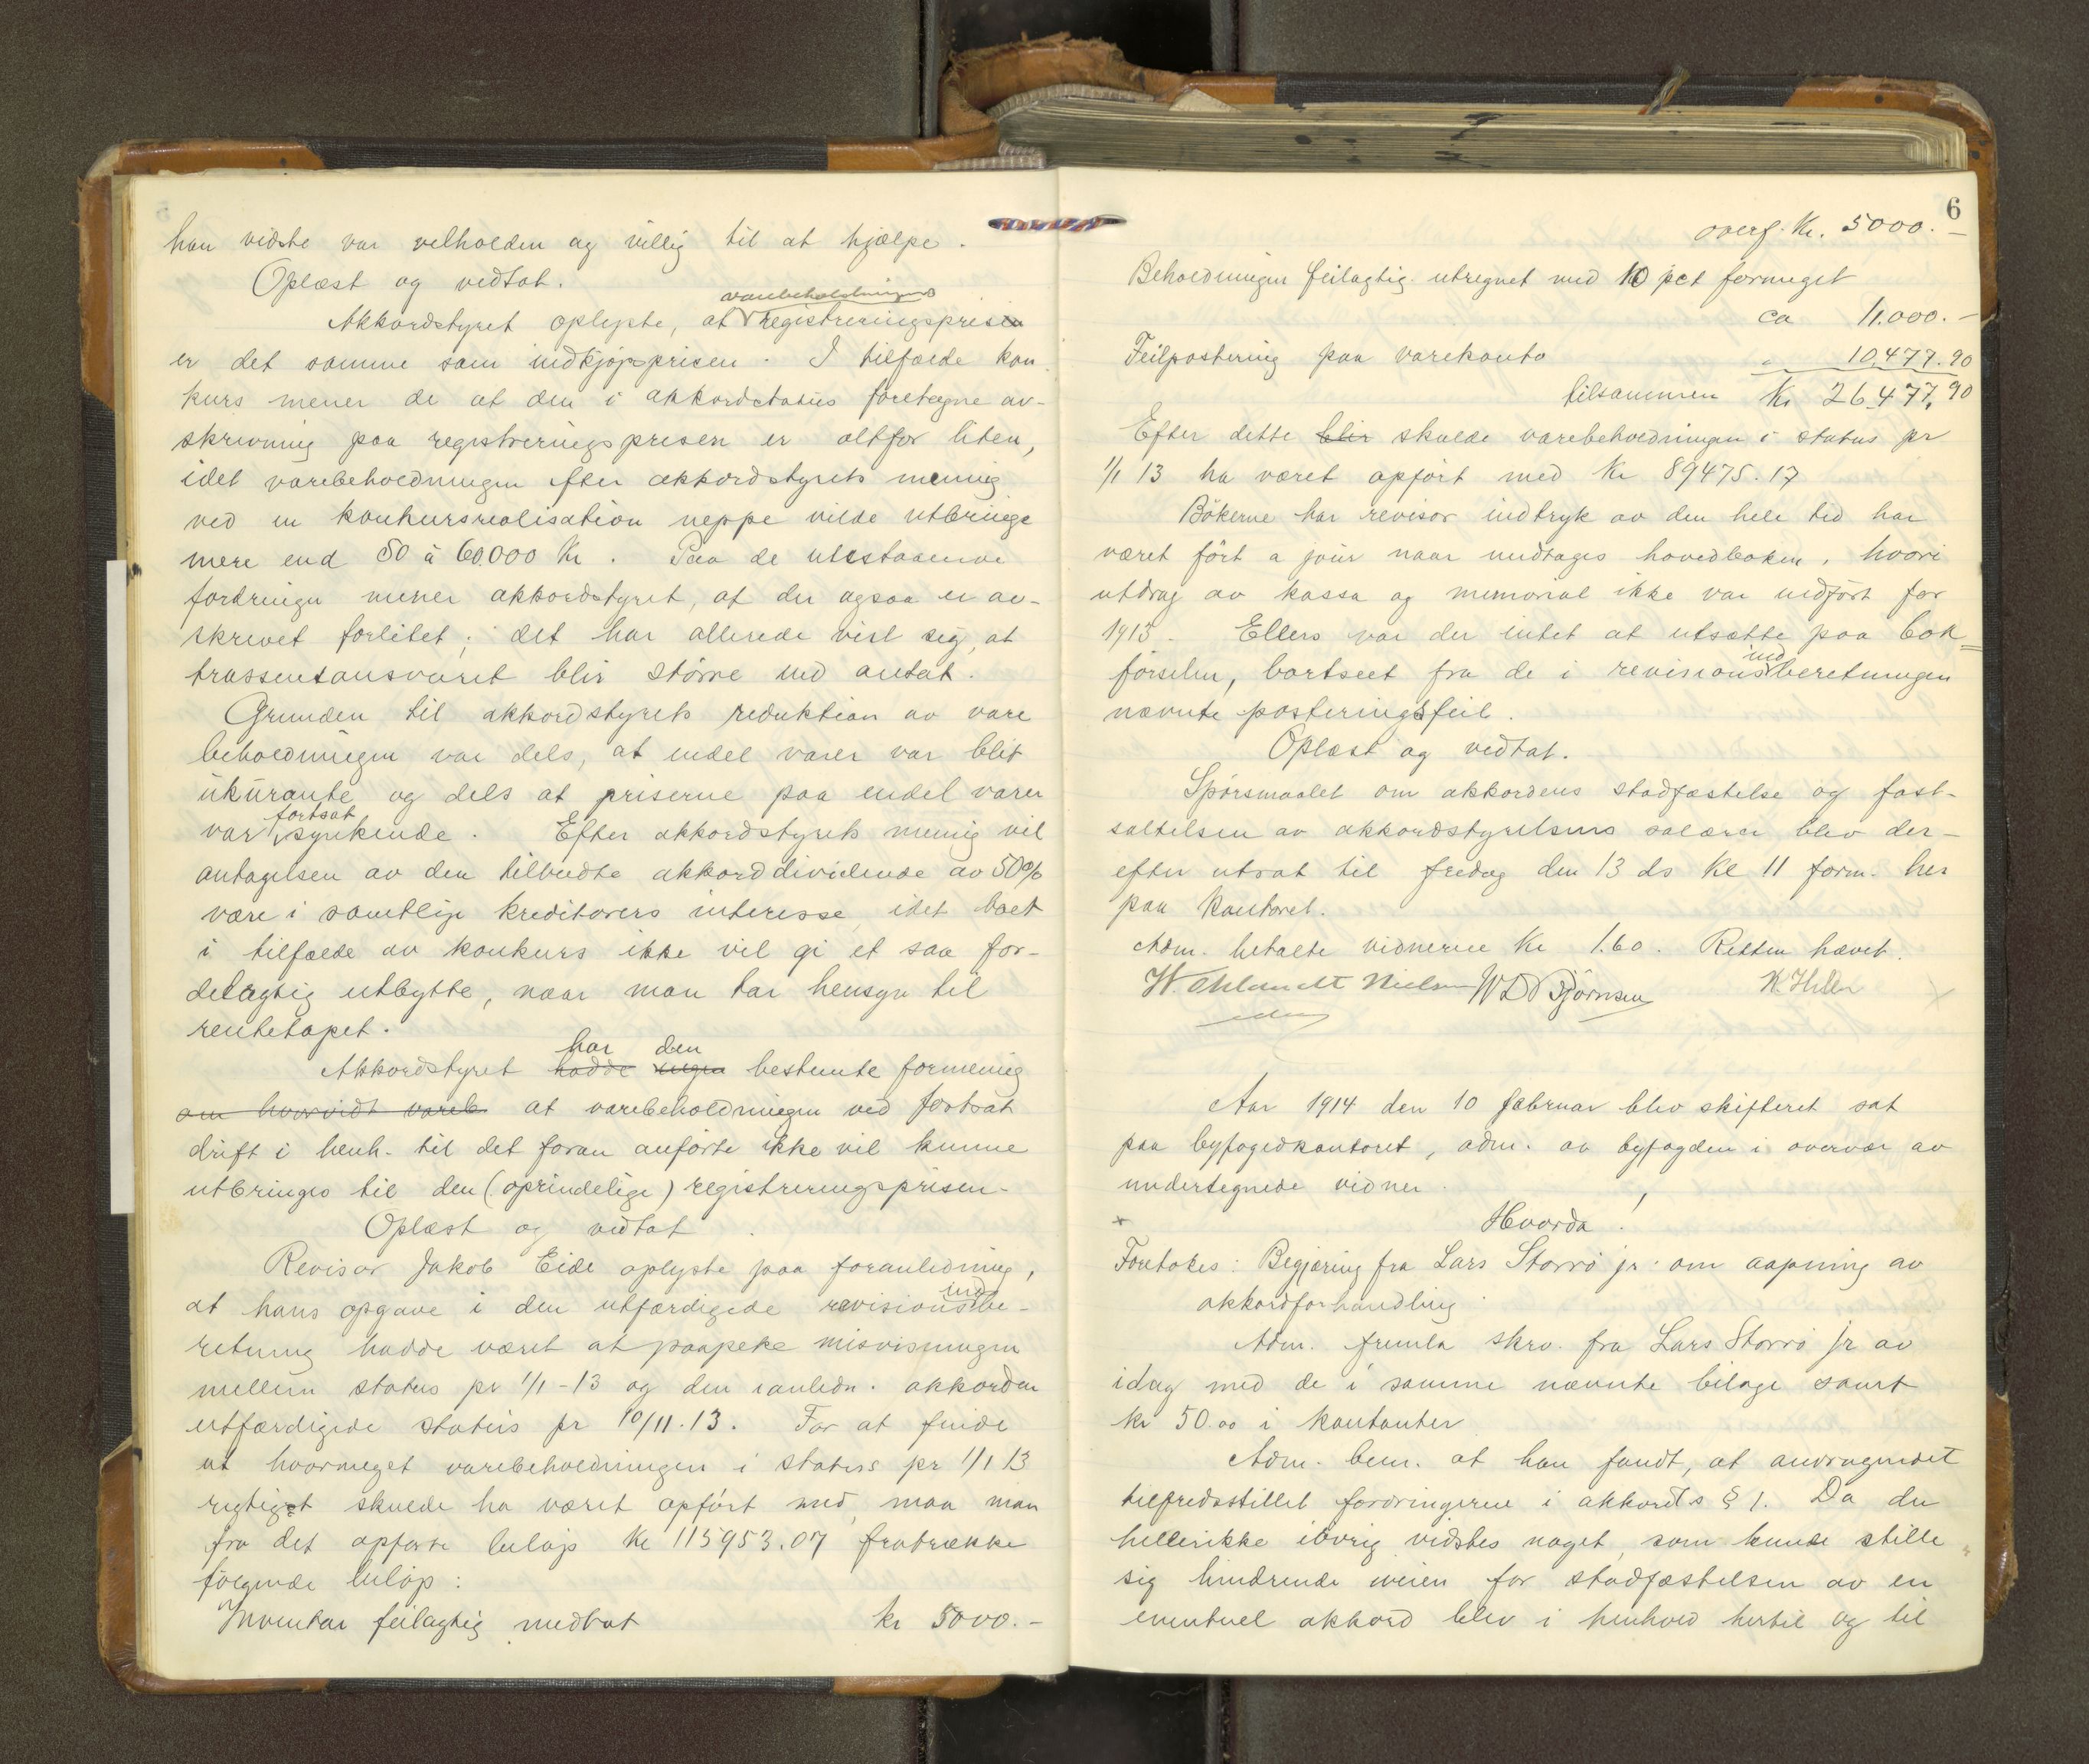 han vidste var velholden og villig til at hjælpe.
Oplæst og vedtat.
varebeholdningens
Akkordstyret oplyste, at registreringsprisen
er det samme som indkjøpsprisen. I tilfælde kon
kurs mener de at den i akkordstatus foretagne av-
skrivning paa registreringsprisen er altfor liten,
idet varebeholdningen efter akkordstyrets mening
ved en konkursrealisation neppe vilde utbringe
mere end 50 à 60.000 Kr. Paa de utestaaende
fordringer mener akkordstyret, at der ogsaa er av-
skrevet forlitet; det har allerede vist sig, at
trassentansvaret blir større end antat.
Grunden til akkordstyrets reduktion av vare
beholdningen var dels, at endel varer var blit
ukurante og dels at priserne paa endel varer
fortsat
var synkende. Efter akkordstyrets mening vil
antagelsen av den tilbudte akkorddividende av 50%
være i samtlige kreditorers interesse, idet boet
i tilfælde av konkurs ikke vil gi et saa for-
delagtig utbytte, naar man tar hensyn til
rentetapet.
har den
Akkordstyret hadde ingen bestemte formening
om hvorvidt vareb. at varebeholdningen ved fortsat
drift i henh. til det foran anførte ikke vil kunne
utbringes til den (oprindelige) registreringsprisen.
Oplæst og vedtat.
Revisor Jakob Eide oplyste paa foranledning,
ind
at hans opgave i den utfærdigede revisionsbe-
retning hadde været at paapeke misvisningen
mellem status pr 1/1-13 og den i anledn. akkorden
utfærdigede status pr 10/11.13. For at finde
ut hvormeget varebeholdningen i status pr 1/1 13
rigtigst skulde ha været opført med, maa man
fra det opførte beløp Kr 115953.07 fratrække
følgende beløp:
Inventar feilagtig medtat kr 5000.-
6
overf. Kr. 5000.-
Beholdningen feilagtig utregnet med 10 pct formeget
ca 11.000.-
Feilpostering paa varekonto " 10,477.90
tilsammen Kr 26,477,90
Efter dette blir skulde varebeholdningen i status pr
1/1 13 ha været opført med Kr 89475.17
Bøkerne har revisor indtryk av den hele tid har
været ført a jour naar undtages hovedboken, hvori
utdrag av kassa og memorial ikke var indført for
1913. Ellers var der intet at utsætte paa bok=
ind
førselen, bortseet fra de i revisionsberetningen
nævnte posteringsfeil.
Oplæst og vedtat.
Spørsmaalet om akkordens stadfæstelse og fast-
sættelsen av akkordstyrelsens salærer blev der-
efter utsat til fredag den 13 ds kl 11 form. her
paa kontoret.
Adm. betalte vidnerne Kr 1.60. Retten hævet.
W. Nielsen W D Bjørnsen
Aar 1914 den 10 februar blev skifteret sat
paa byfogedkontoret, adm. av byfogden i overvær av
undertegnede vidner.
Hvorda!
Foretokes: Begjæring fra Lars Storrø jr. om aapning av
akkordforhandling.
Adm. fremla skrv. fra Lars Storrø jr av
idag med de i samme nævnte bilage samt
kr 50.00 i kontanter
Adm. bem. at han fandt, at andragendet
tilfredsstillet fordringerne i akkordls § 1. Da der
hellerikke iøvrig vidstes noget, som kunde stille
sig hindrende iveien for stadfæstelsen av en
eventuel akkord blev i henhold hertil og til